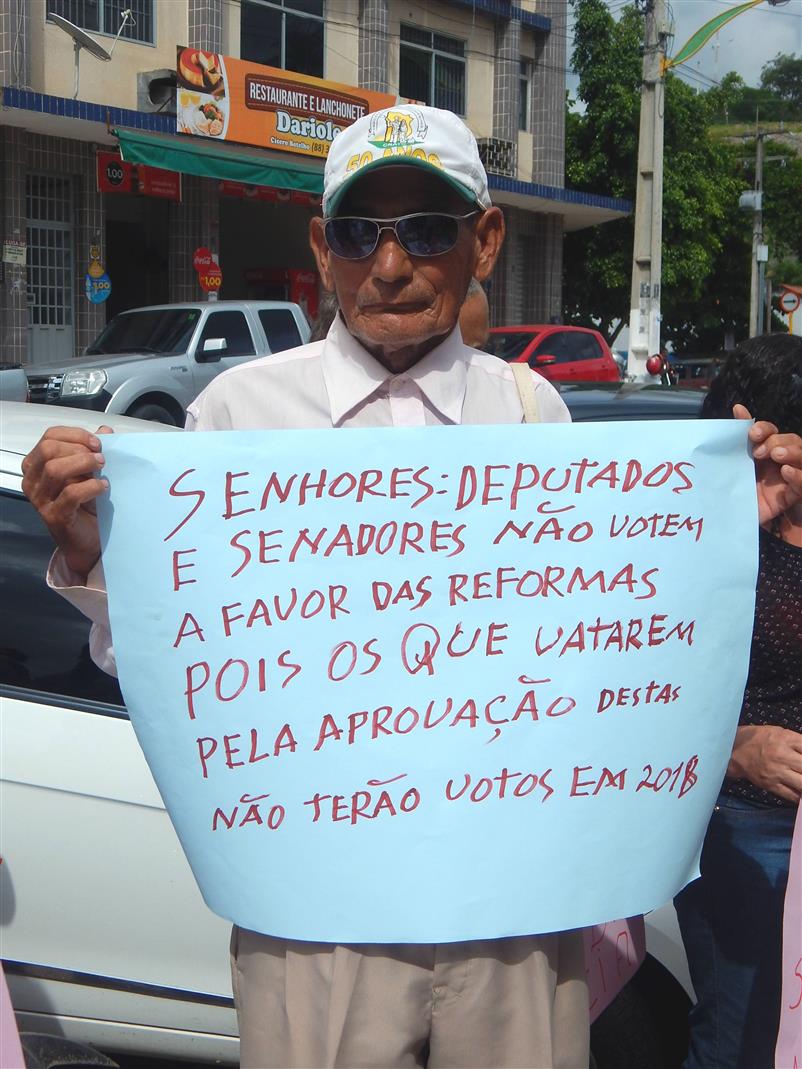 RESTAURANTE E LANCHONETE
Dariole
Cicero Botelho (88) 3
1.00
1,00
1,00
50 ANOS
SENHORES: DEPUTADOS
E SENADORES NÃO VOTEM
A FAVOR DAS REFORMAS
POIS OS QUE VATAREM
PELA APROVAÇÃO DESTAS
NÃO TERÃO VOTOS EM 2018